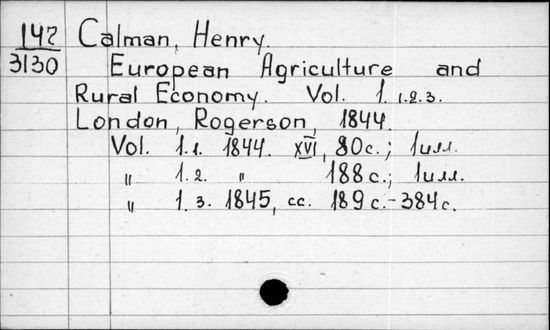 142 Calman, Henry.
3130 European Agriculture and
Rural Economy. Vol. 1. 1.2.3.
London, Rogerson, 1844.
Vol. 1.1. 1844. XVI, 80 с.; 1 илл.
" 1.2. " 188 с.; 1 илл.
" 1.3. 1845, сс. 189 с.-384 с.